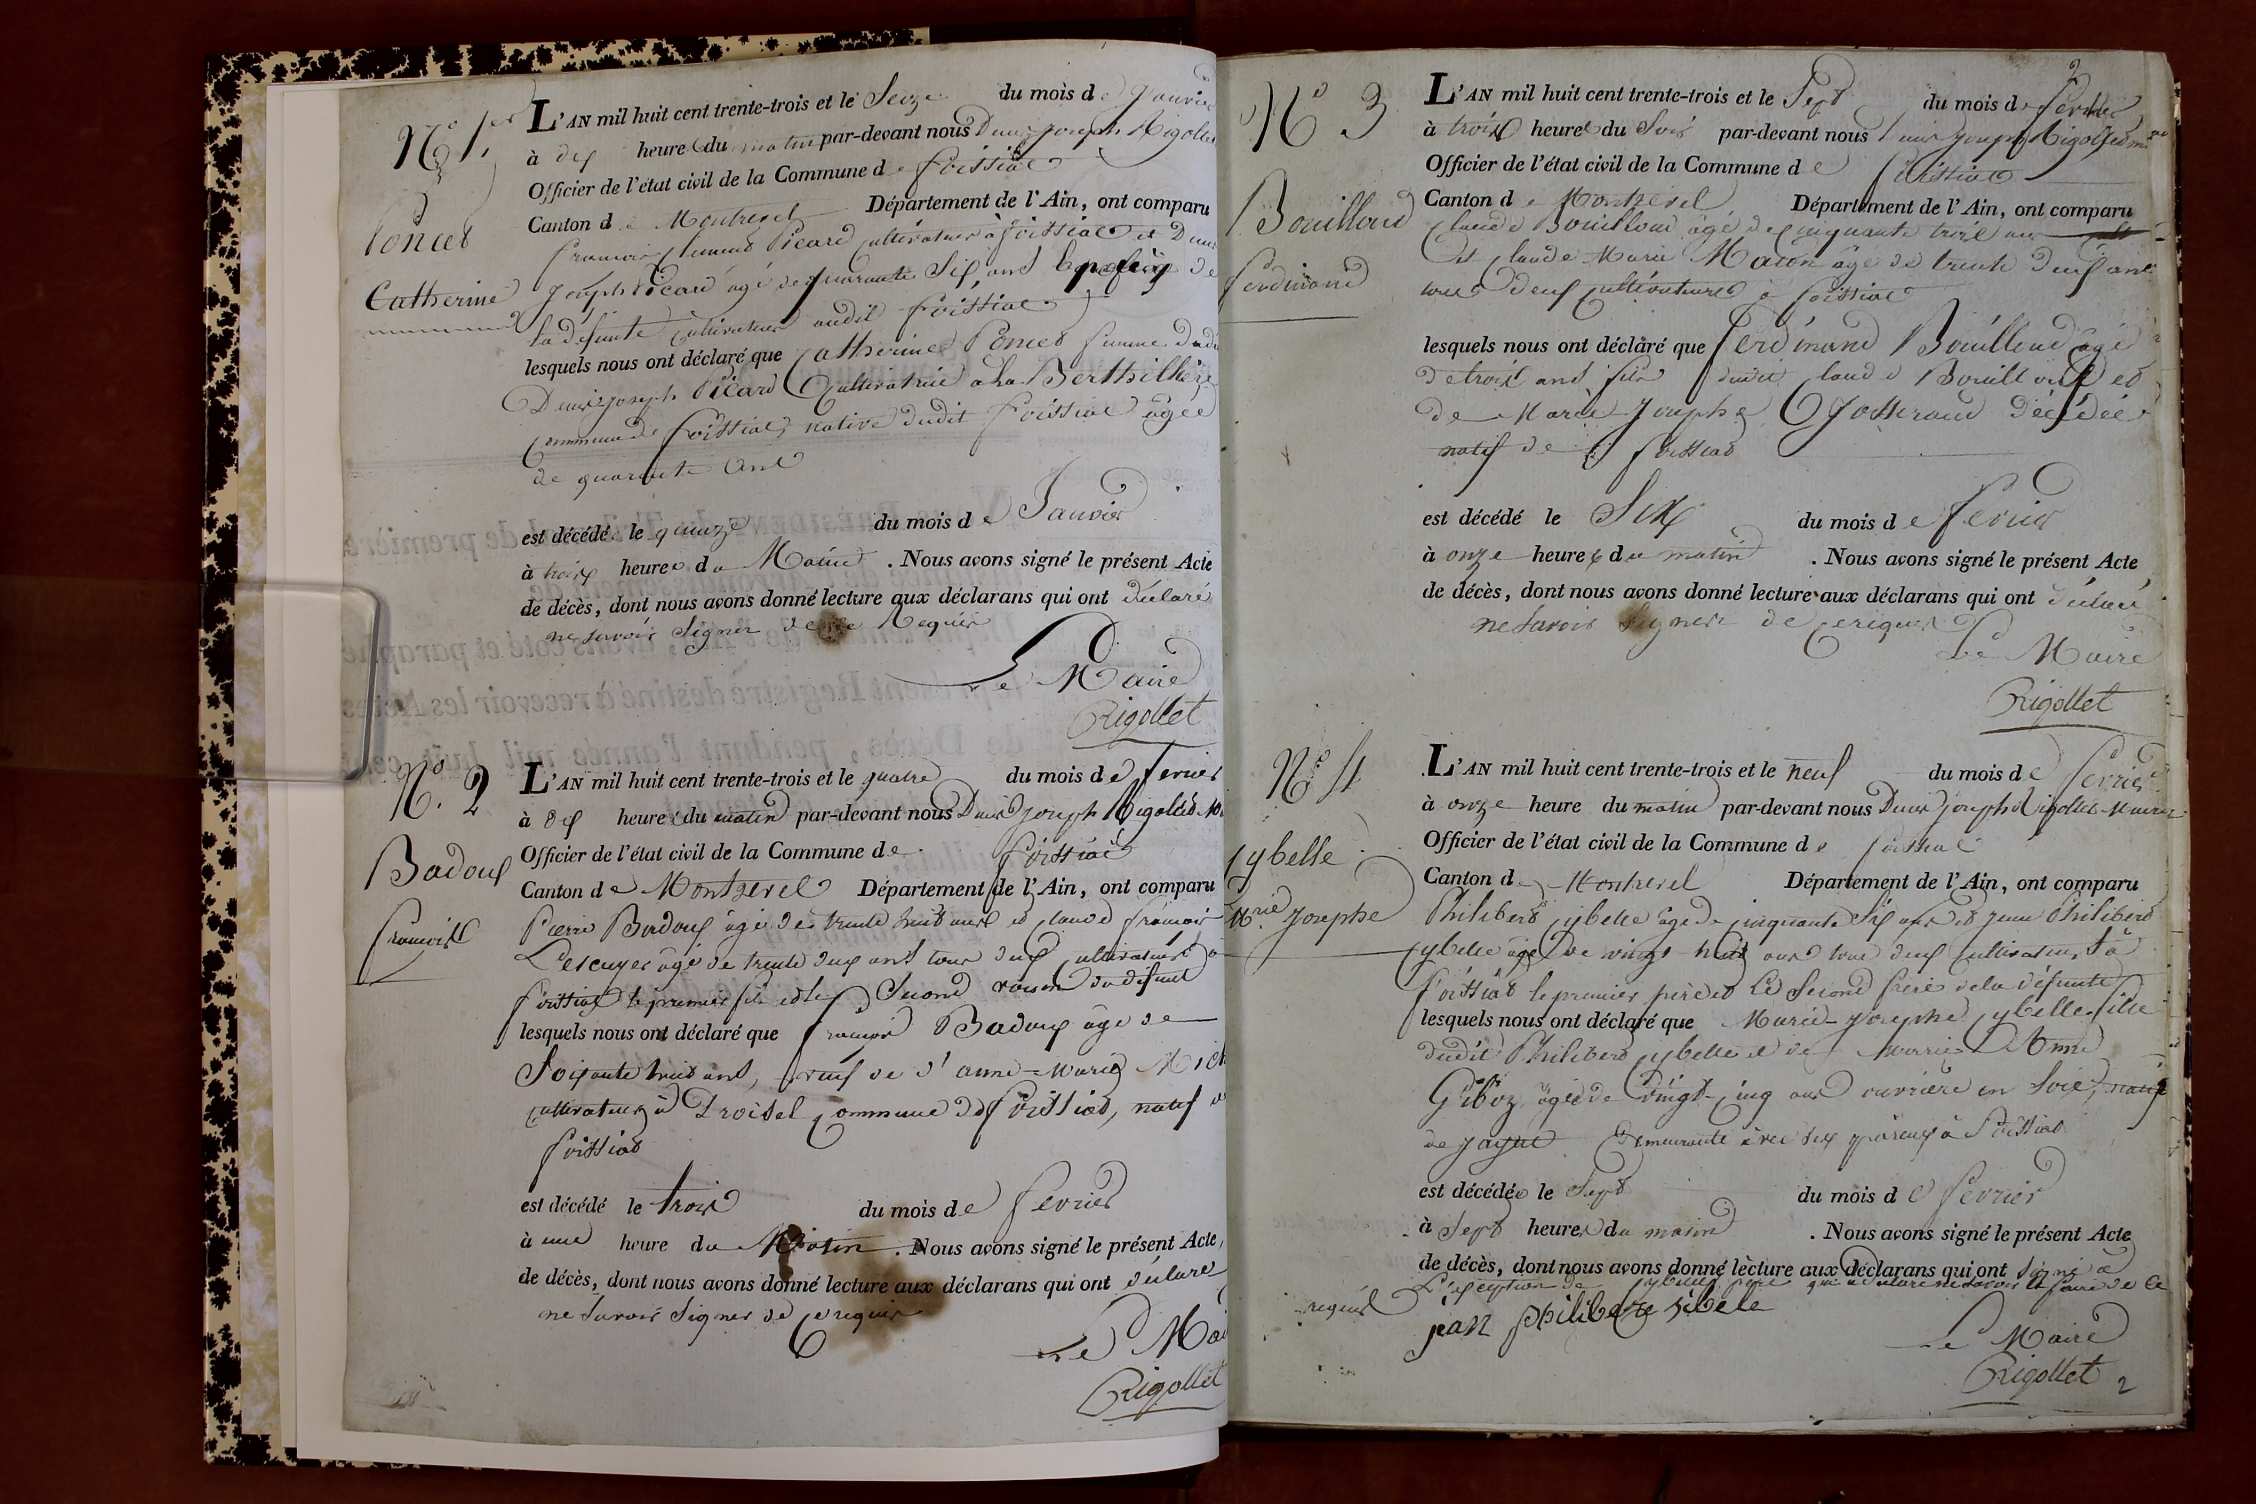 N° 1er
Poncet
Catherine
L'AN mil huit cent trente-trois et le Seize du mois de Janvier
à dix heures du matin par-devant nous Denis Joseph Rigollet
Officier de l'état civil de la Commune de Foissiat
Canton de Montrevel Département de l'Ain, ont comparu
françois Picard cultivateur à foissiat et Denis
Joseph Picard agé de quarante Six ans de
la défunte cultivateur audit foissiat
lesquels nous ont déclaré que Catherine Poncet femme dudit
Denis Joseph Picard Cultivatrice a La Berthillière
commune de foissiat, native dudit foissiat âgée
de quarante Ans
est décédée le quinze du mois de Janvier
à trois heures du Matin . Nous avons signé le présent Acte
de décès, dont nous avons donné lecture aux déclarans qui ont déclaré
ne savoir Signer de ce Requis
Le Maire
Rigollet
N°. 2
Badoux
françois
L'AN mil huit cent trente-trois et le quatre du mois de fevrier
à dix heures du matin par-devant nous Denis Joseph Rigollet
Officier de l'état civil de la Commune de foissiat
Canton de Montrevel Département de l'Ain, ont comparu
Pierre Badoux âgé de trente huit ans et Claude françois
Lescuyer âgé de trente deux ans tous deux cultivateurs à
foissiat le premier fils et le Second voisin du défunt
lesquels nous ont déclaré que françois Badoux âgé de
Soixante huit ans, veuf de d' anne-Marie
cultivateur à Troisel Commune de foissiat, natif
foissiat
est décédé le trois du mois de fevrier
à une heure du Matin . Nous avons signé le présent Acte,
de décès, dont nous avons donné lecture aux déclarans qui ont déclaré
ne Savoir Signer de ce requis
Le
Rigollet
2
N° 3
Bouilloud
ferdinand
L'AN mil huit cent trente-trois et le Sept du mois de fevrier
à trois heures du Soir par-devant nous Denis Joseph Rigollet
Officier de l'état civil de la Commune de foissiat
Canton de Montrevel Département de l'Ain, ont comparu
Claude Bouilloud âgé de Cinquante trois ans
et Claude Marie Macon âgé de trente deux ans
tous deux cultivateurs à foissiat
lesquels nous ont déclaré que ferdinand Bouilloud âgé
de trois ans fils dudit Claude Bouilloud et
de Marie Josephe Josserand décédée
natif de foissiat
est décédé le Six du mois de fevrier
à onze heures du matin . Nous avons signé le présent Acte
de décès, dont nous avons donné lecture aux déclarans qui ont déclaré
ne Savoir Signer de ce requis
Le Maire
Rigollet
N° 4
Cybelle
Mrie Josephe
L'AN mil huit cent trente-trois et le neuf du mois de fevrier
à onze heure du matin par-devant nous Denis Joseph Rigollet Maire
Officier de l'état civil de la Commune de foissiat
Canton de Montrevel Département de l'Ain, ont comparu
Philibert Cybelle âgé de Cinquante Six ans et Jean Philibert
Cybelle âgé de vingt-huit ans tous deux Cultivateurs à
foissiat le premier père et Le Second frère de la défunte
lesquels nous ont déclaré que Marie-Josephe Cybelle fille
dudit Philibert Cybelle et de Marie Anne
Giboz âgée de vingt-cinq ans ouvrière en Soie, native
de Jayat Demeurante avec ses parens à foissiat
est décédée le Sept du mois de fevrier
à Sept heures du matin . Nous avons signé le présent Acte
de décès, dont nous avons donné lecture aux déclarans qui ont Signé à
L'exception de Cybelle père qui a déclaré ne savoir le faire de ce
requis
jean philiberte sibele
Le Maire
Rigollet
2